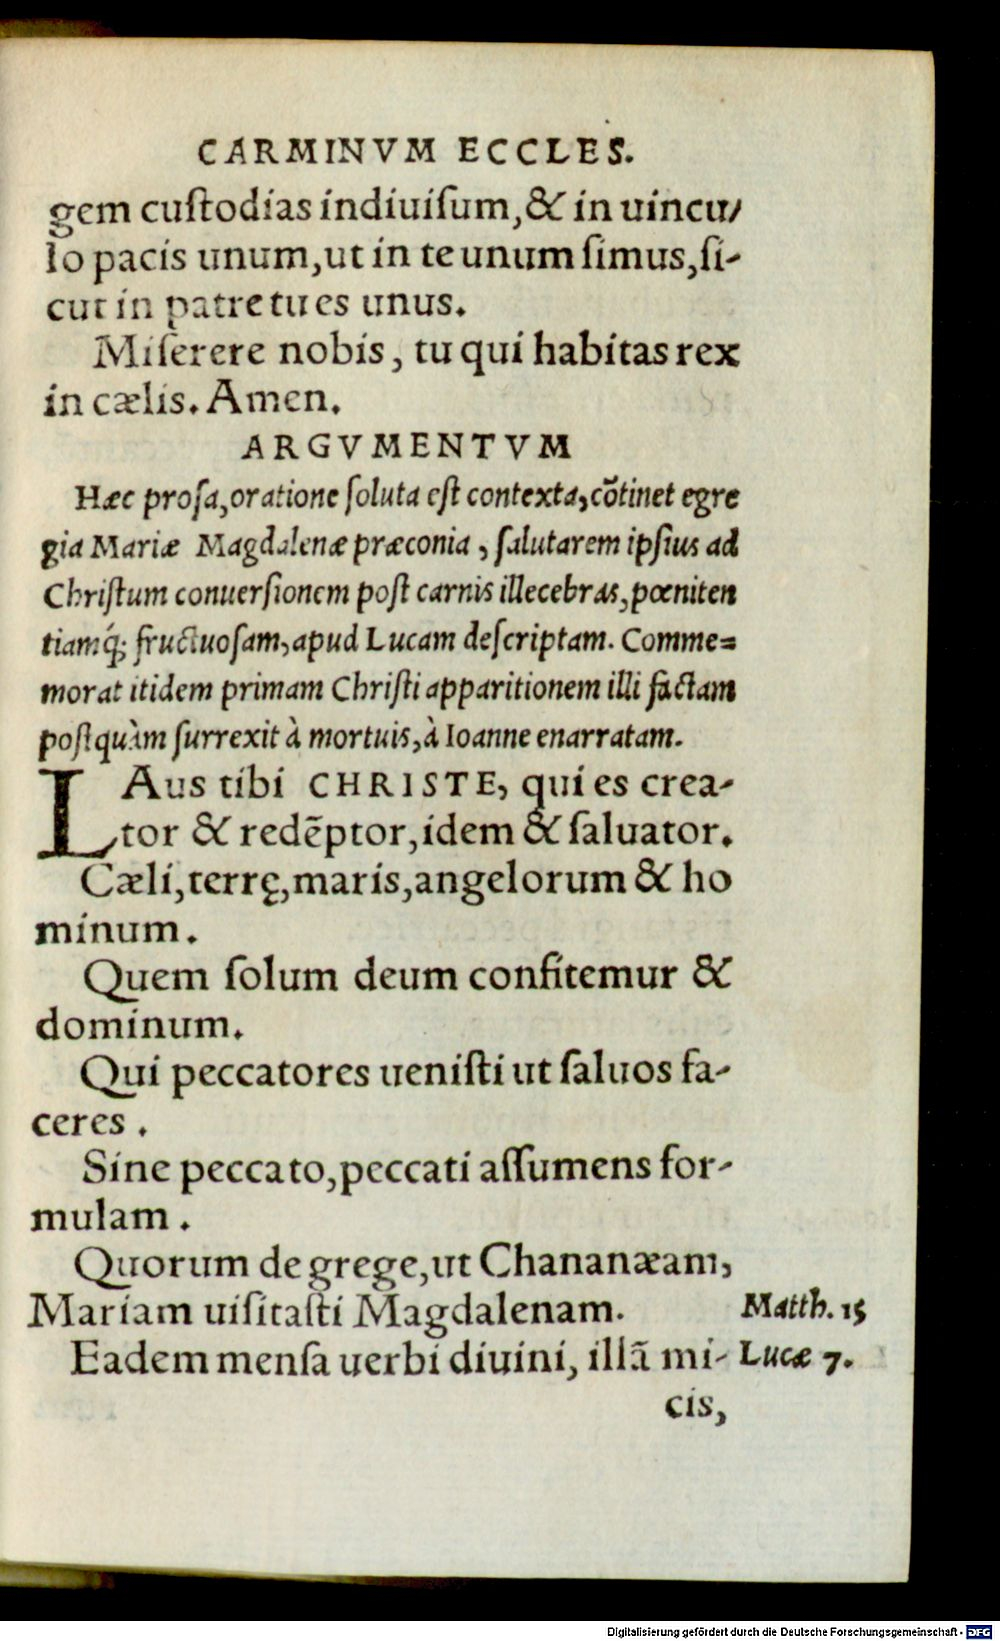 CARMINVM ECCLES.
gem cuſtodias indiuiſum, & in uincu/
lo pacis unum, ut in te unum ſimus, ſi-
cut in patre tu es unus.
Miſerere nobis, tu qui habitas rex
in cælis. Amen.
ARGVMENTVM
Hæc proſa, oratione ſoluta eſt contexta, cõtinet egre
gia Mariæ Magdalenæ præconia, ſalutarem ipſius ad
Chriſtum conuerſionem poſt carnis illecebras, pœniten
tiamq́; fructuoſam, apud Lucam deſcriptam. Comme=
morat itidem primam Chriſti apparitionem illi factam
poſtquàm ſurrexit à mortuis, à Ioanne enarratam.
LAus tibi CHRISTE, qui es crea-
tor & redẽptor, idem & ſaluator.
Cæli, terrę, maris, angelorum & ho
minum.
Quem ſolum deum confitemur &
dominum.
Qui peccatores ueniſti ut ſaluos fa-
ceres.
Sine peccato, peccati aſſumens for-
mulam.
Quorum de grege, ut Chananæam,
Mariam uiſitaſti Magdalenam. Matth. 15
Eadem menſa uerbi diuini, illã mi- Lucæ 7.
cis,
Digitalisierung gefördert durch die Deutsche Forschungsgemeinschaft - DFG